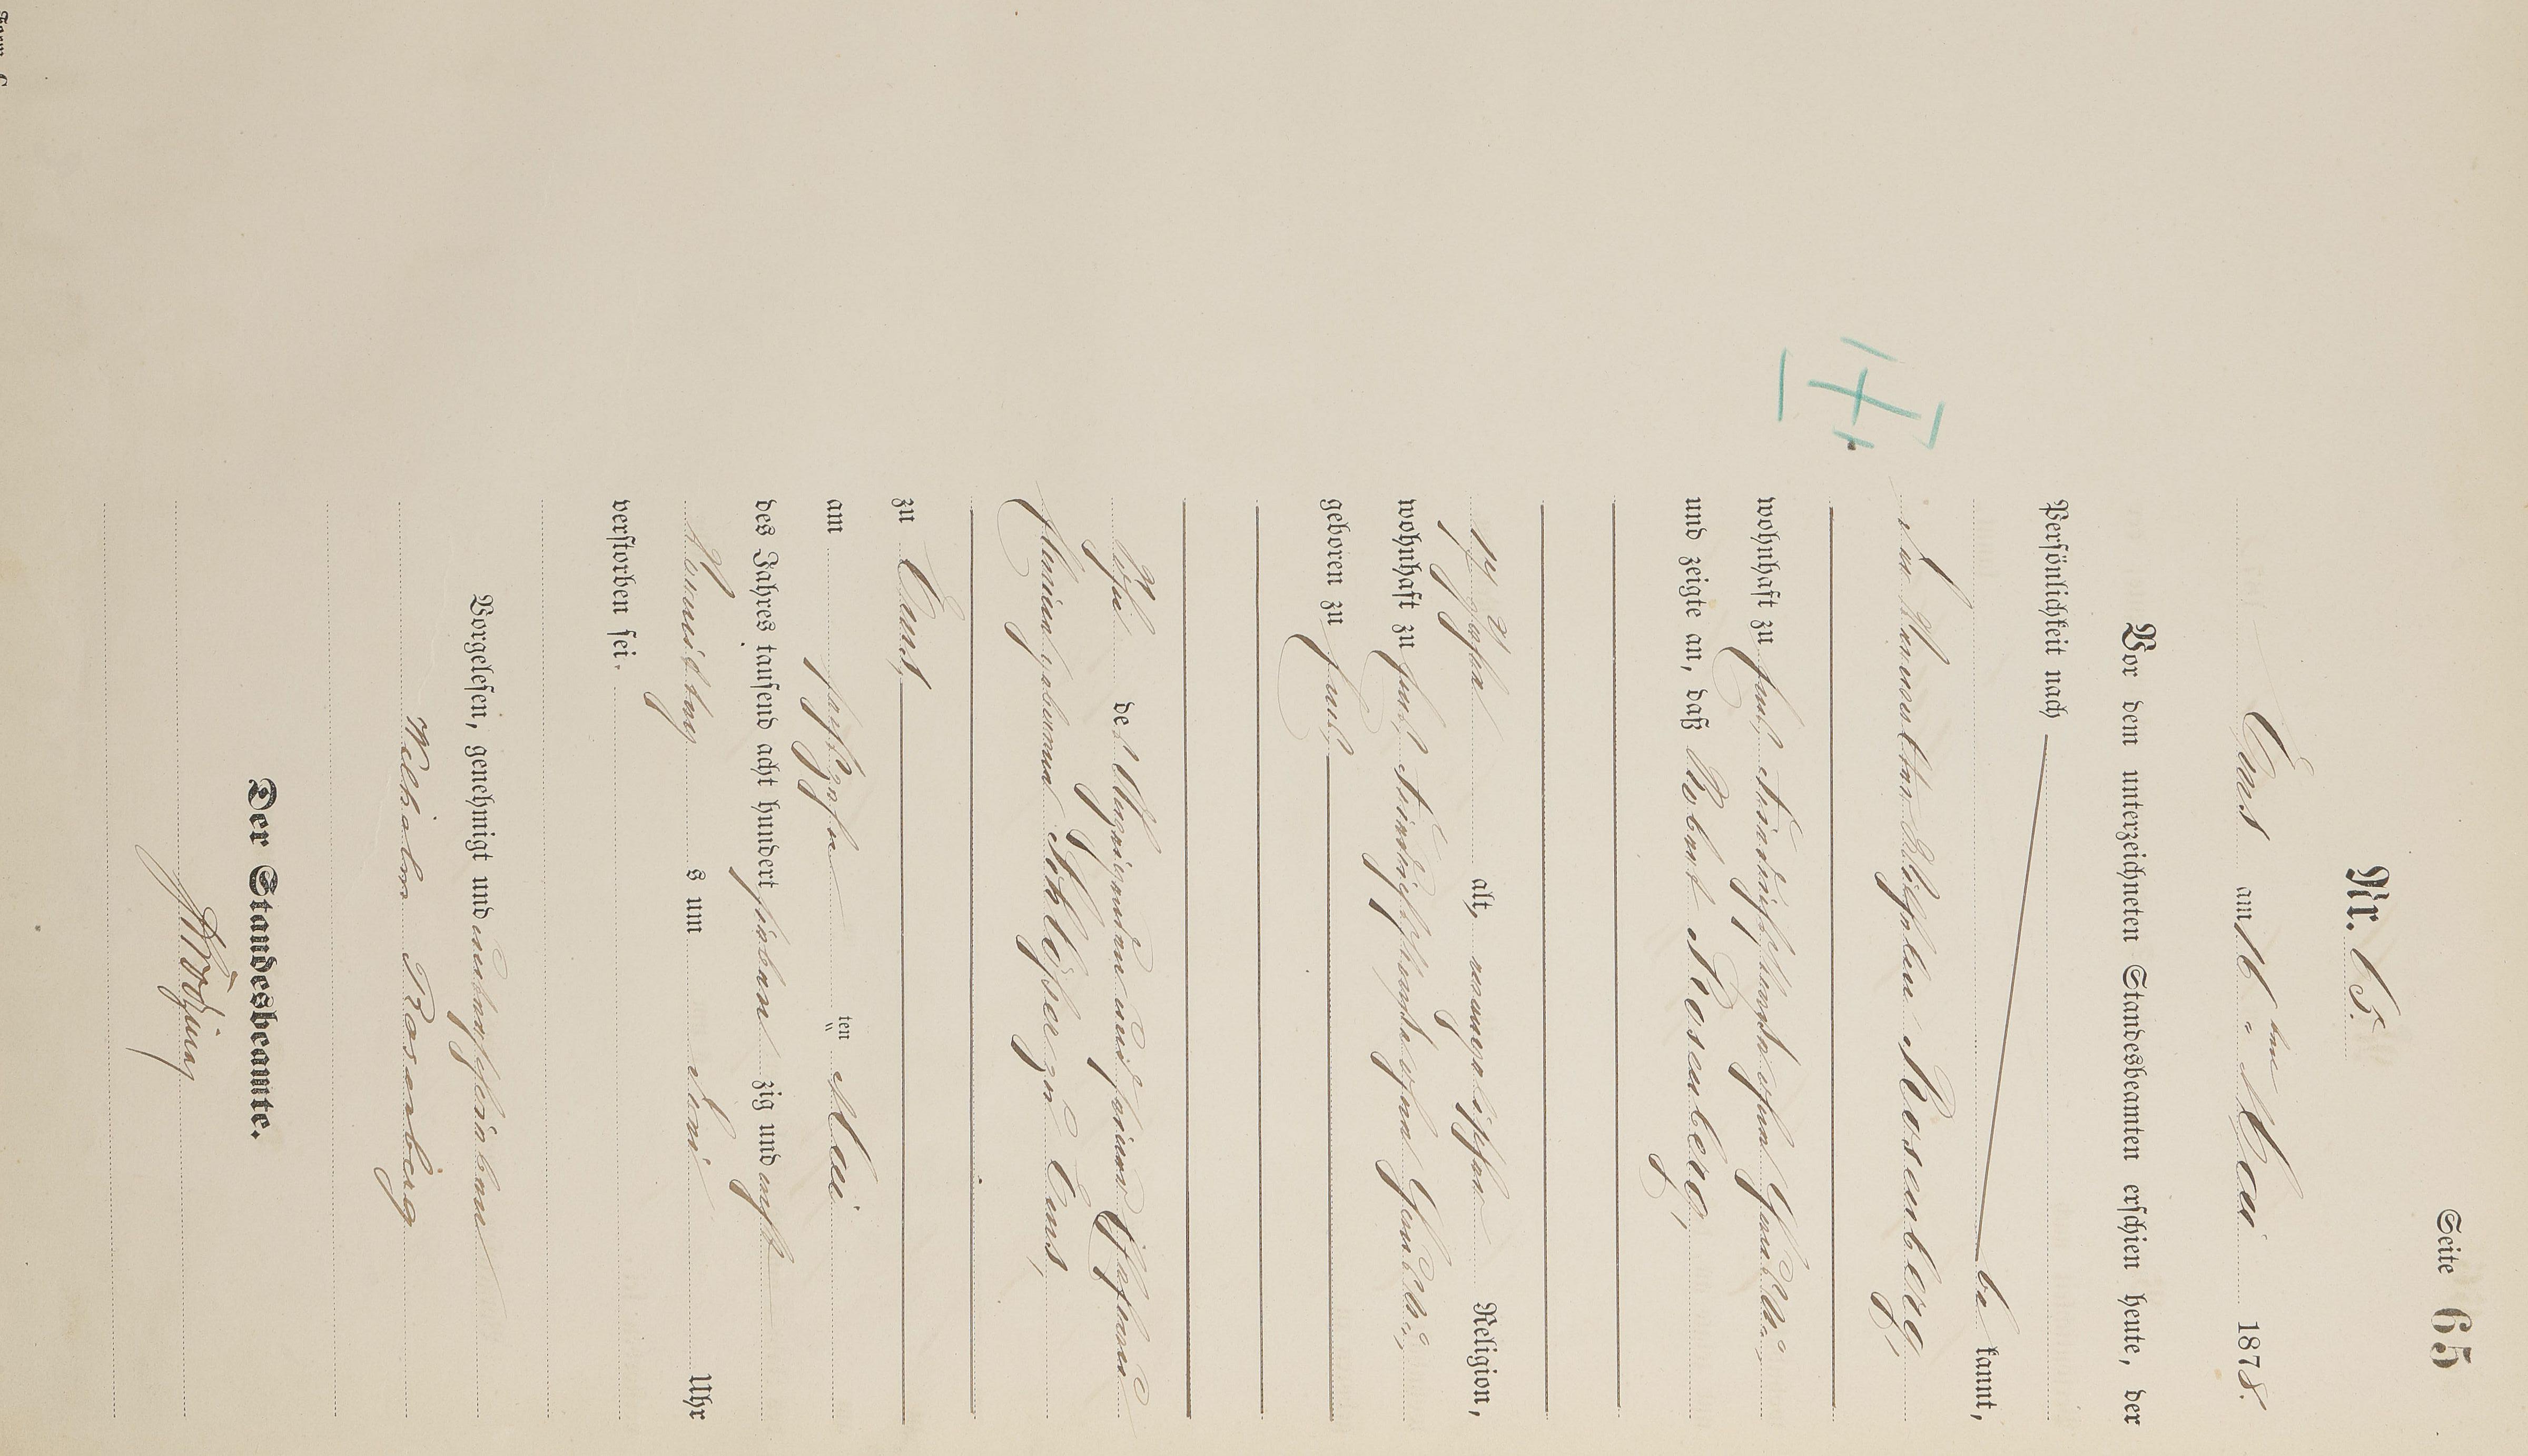 Seite 65
Nr. 65.
Ems am 16ten Mai 1878.
Vor dem unterzeichneten Standesbeamten erschien heute, der
Persönlichkeit nach
be kannt,
der Wilhelm Rosenberg,
wohnhaft zu Ems
und zeigte an, daß Robert Rosenberg,
alt, evangelischer Religion,
wohnhaft zu Ems
geboren zu Ems
Sohn des Anzeigenden und seiner Ehefrau
geborenen Schlosser zu Ems,
zu Ems,
am sechzehn ten Mai
des Jahres tausend acht hundert sieben zig und acht
Vormittags um drei Uhr
verstorben sei.
Vorgelesen, genehmigt und unterschrieben
Wilhelm Rosenberg
Der Standesbeamte.